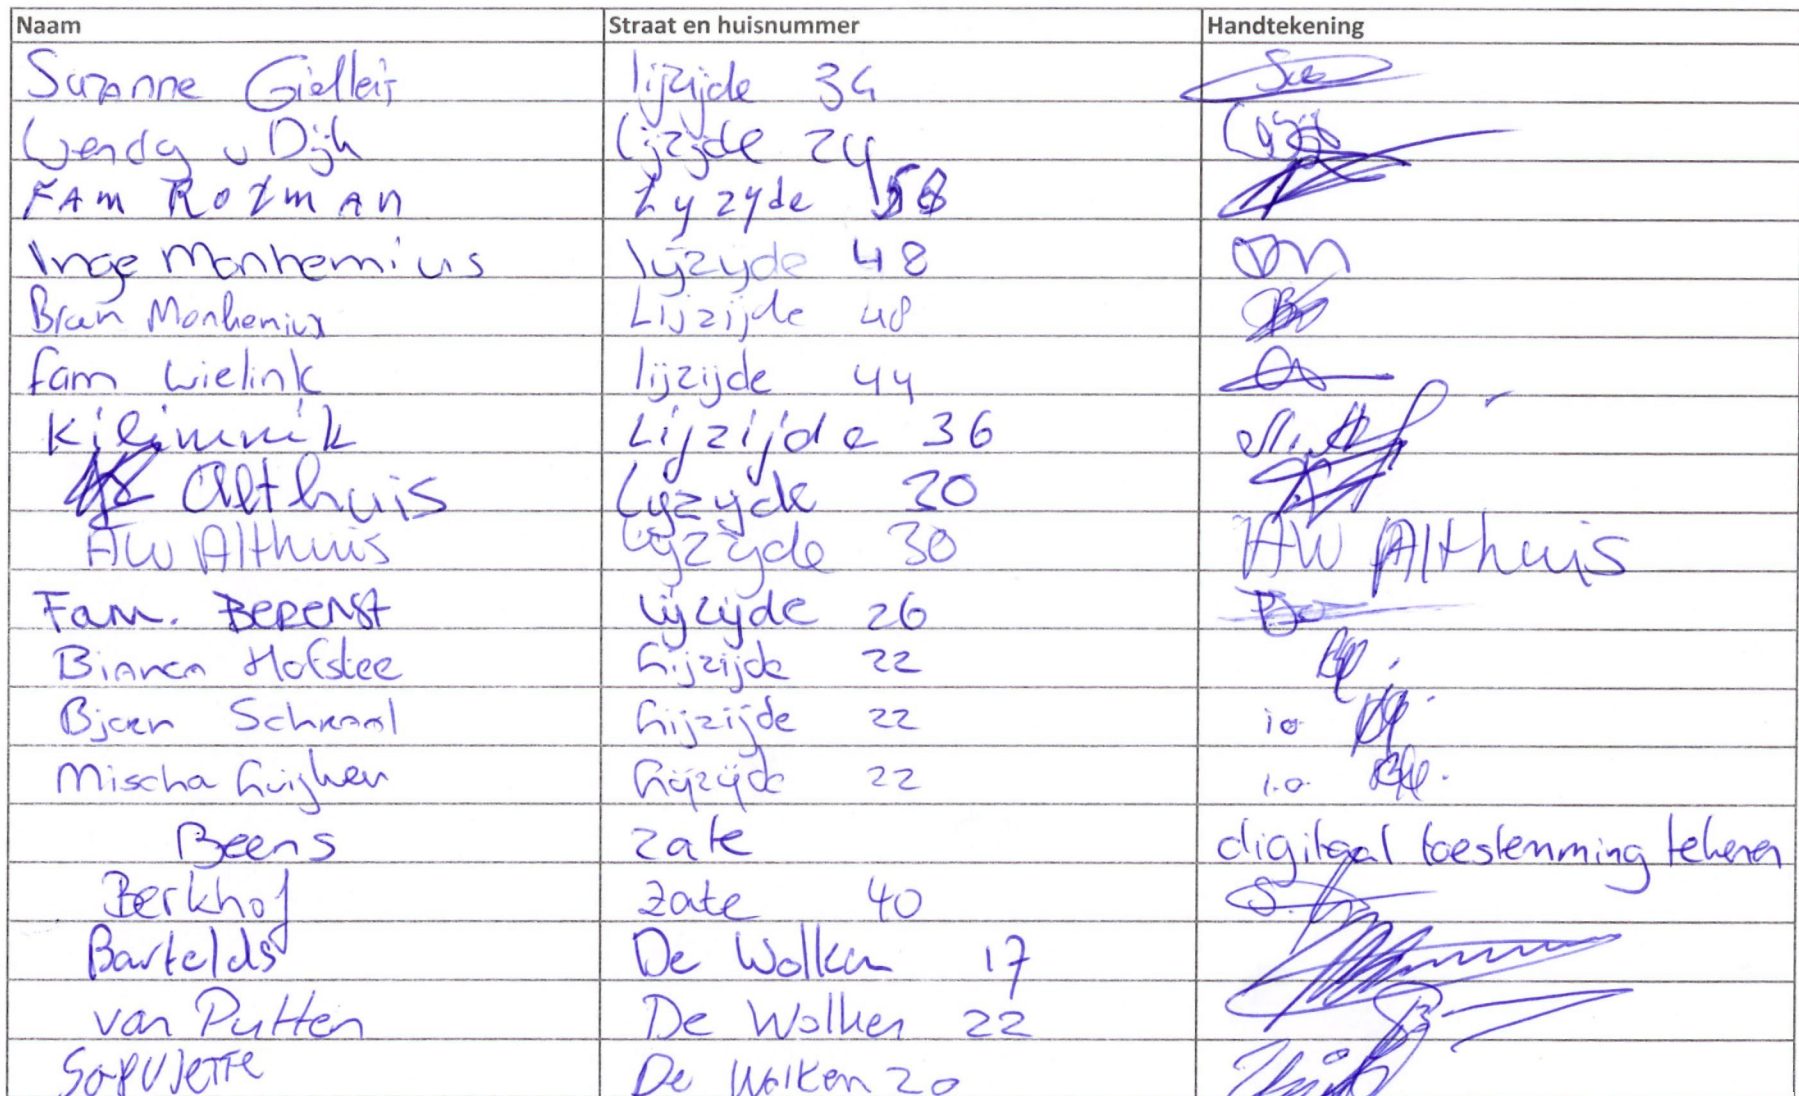 Naam Straat en huisnummer Handtekening
Suzanne Gielleit lijzijde 34
Wendy v Dijk lijzijde 24
FAM ROZMAN Lyzyde 58
Inge Monhemius lijzyde 48
Bram Monhemius Lijzijde 48
fam Wielink lijzijde 44
Kilimnik Lijzijde 36
Althuis Lyzyde 30
AW Althuis Lyzyde 30 AW Althuis
Fam. BEREnst Lijzijde 26
Bianca Hofstee Lijzijde 22
Bjorn Schraal Lijzijde 22 io
Mischa Luijken Lijzijde 22 i.o.
Beens zate digitaal toestemming tekenen
Berkhof zate 40
Bartelds De Wolken 17
van Putten De Wolken 22
SOPUJETTE De Wolken 20